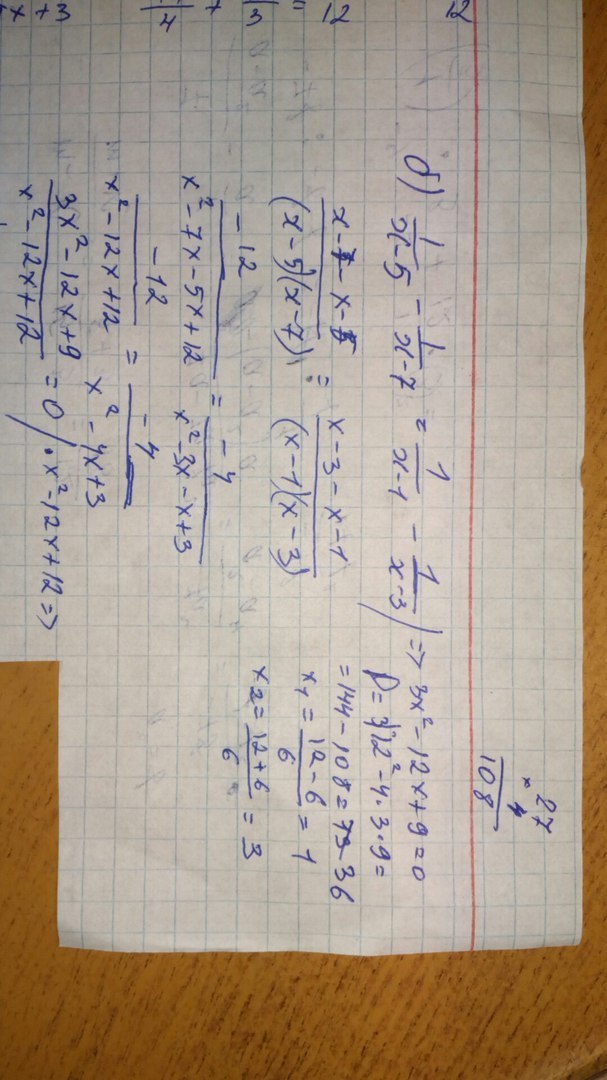 x + 3
4 + 3 = 12
12
б) 1/(x-5) - 1/(x-7) = 1/(x-1) - 1/(x-3)
(x-7-x-5)/((x-5)(x-7)) = (x-3-x-1)/((x-1)(x-3))
-12/(x²-7x-5x+12) = -4/(x²-3x-x+3)
-12/(x²-12x+12) = -4/(x²-4x+3)
(3x²-12x+9)/(x²-12x+12) = 0 / · x²-12x+12 =>
=> 3x²-12x+9=0
D = 12²-4·3·9=
=144-108=36
x₁ = (12-6)/6 = 1
x₂ = (12+6)/6 = 3
27
× 4
108